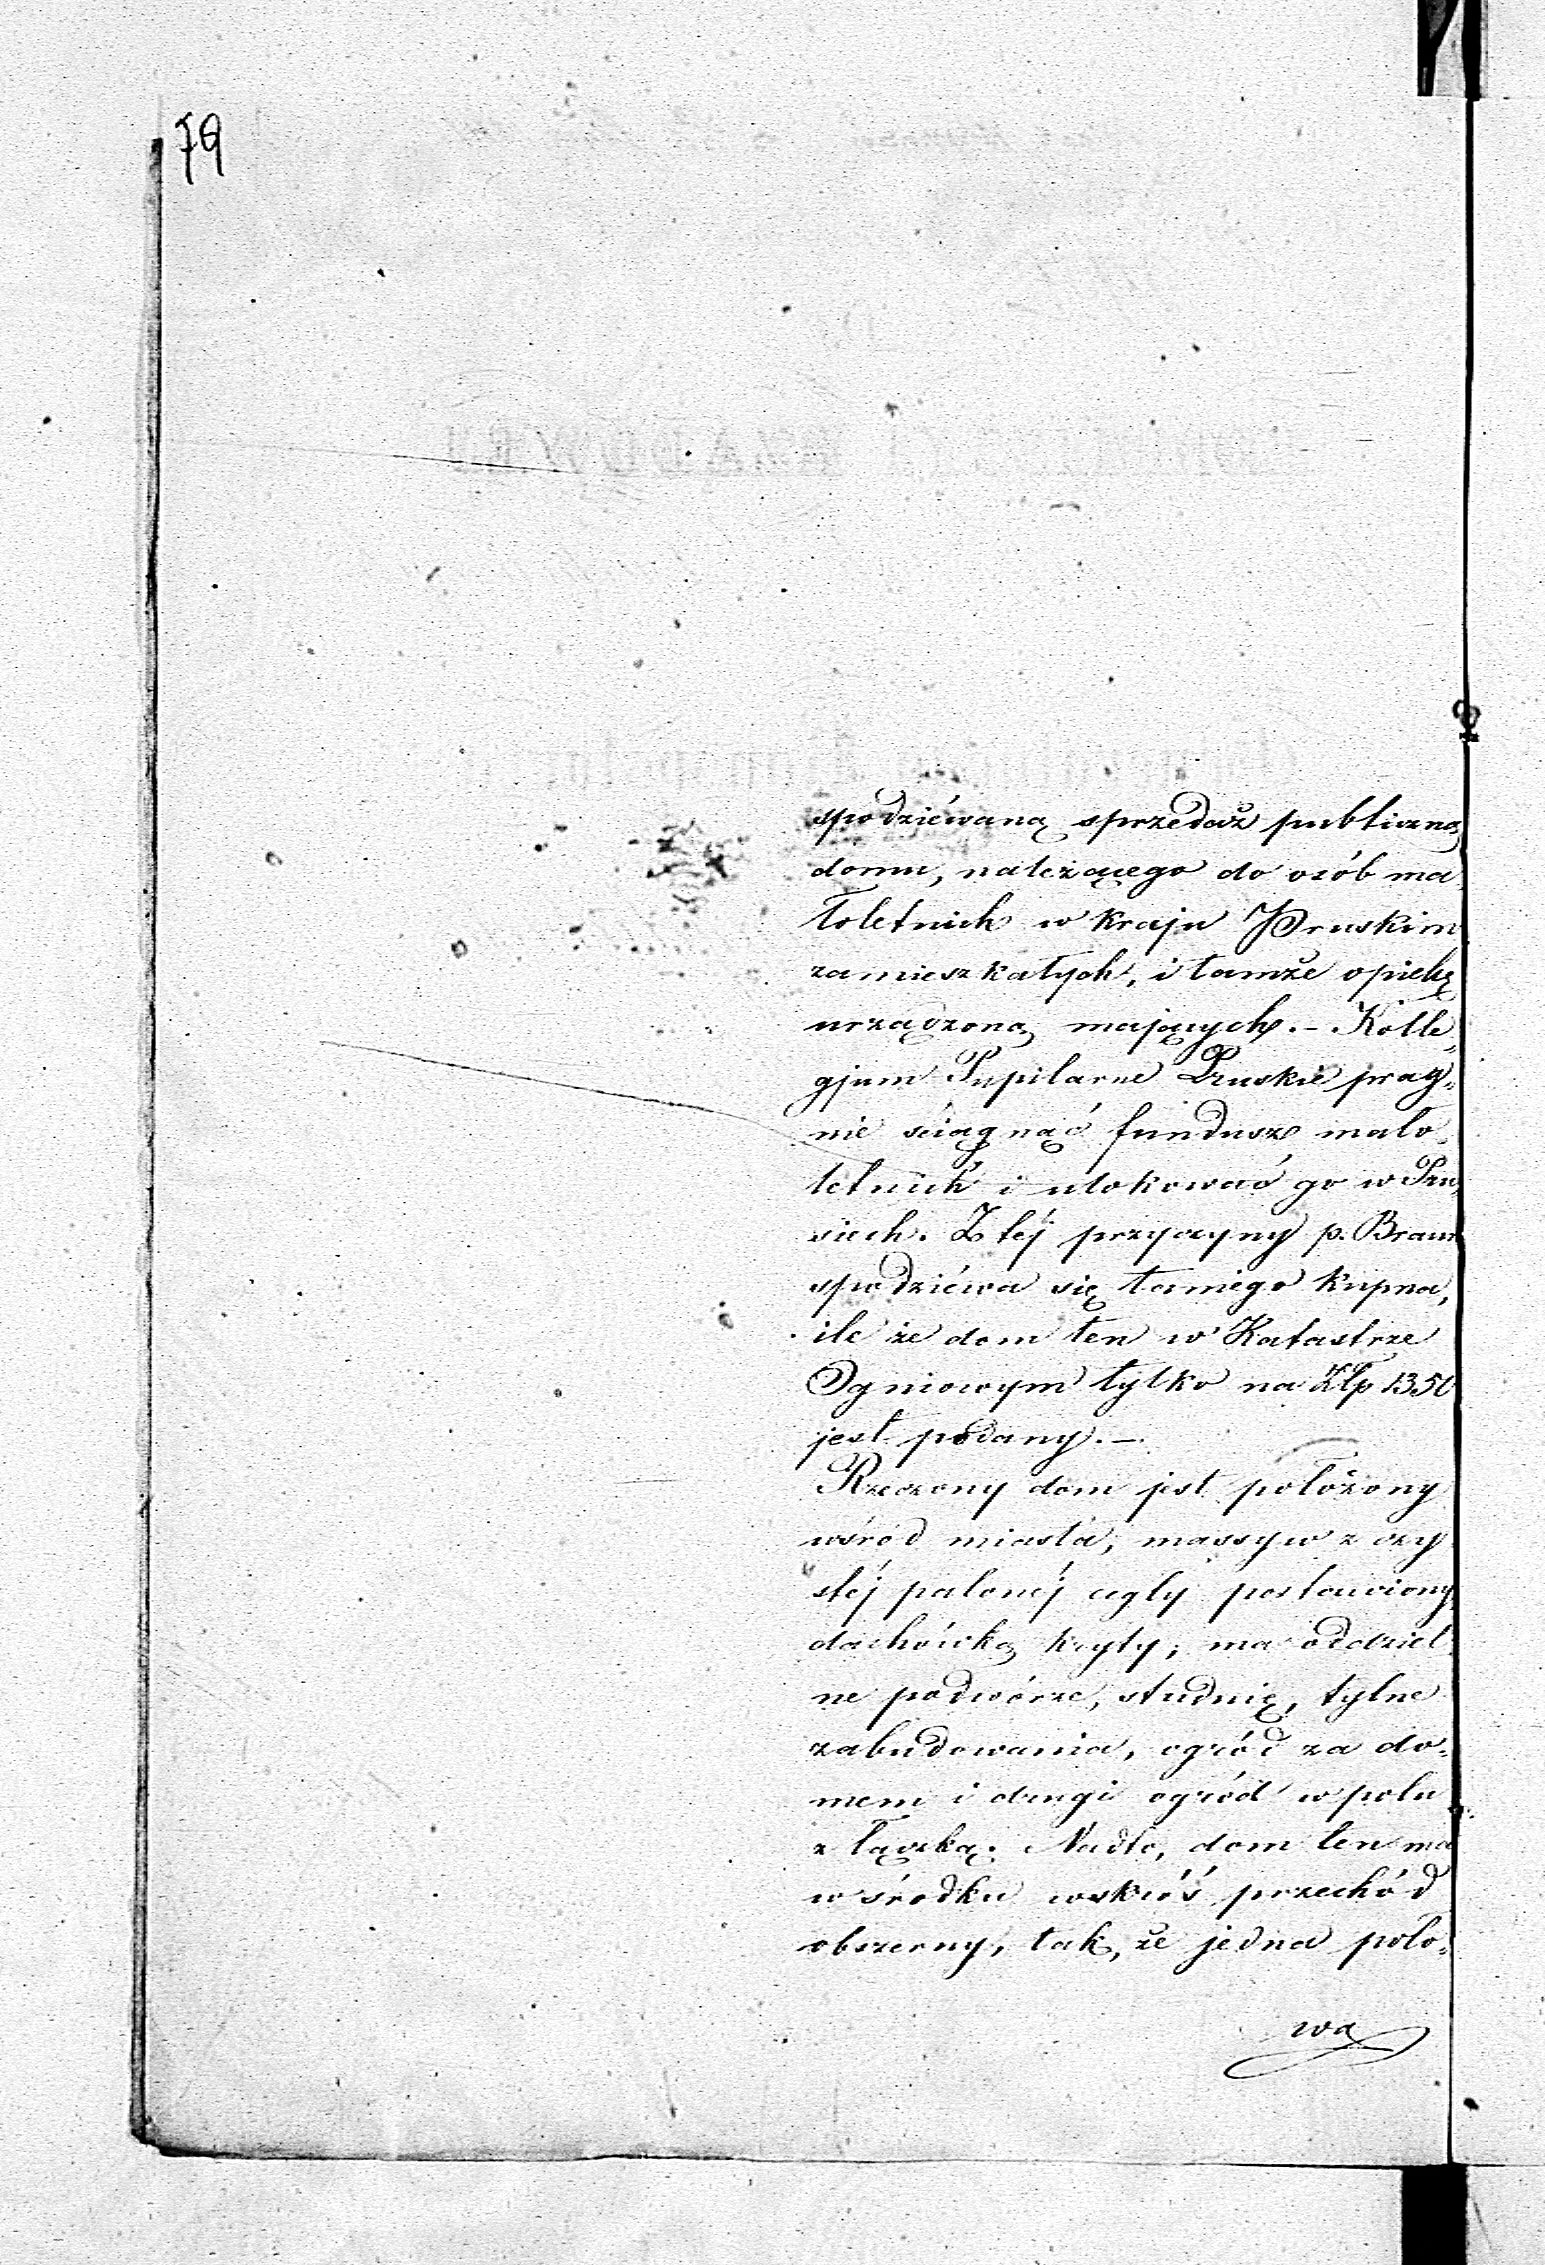 79
spodziéwaną sprzedaż publiczną
domu, należącego do osób ma
łoletnich w kraju Pruskim
zamieszkałych, i tamże opiekę
urządzoną mających. – Kolle„
gjum Pupilarne Pruskie prag„
nie ściągnąć fundusz mało„
letnich i ulokować go w Pru„
siech. Z téj przyczyny p. Braun
spodziéwa się taniego kupna,
ile że dom ten w Katastrze
Ogniowym tylko na Złp 1350
jest podany. –
Rzeczony dom jest położony
wśród miasta, massyw z czy
stéj palonéj cegły postawiony
dachówką kryty; ma oddziel
ne podwórze, studnię, tylne
zabudowania, ogród za do„
mem i drugi ogród w polu
z łączką. Nadto, dom ten ma
w środku wskróś przechód
obszerny, tak, że jedna poło„
wa